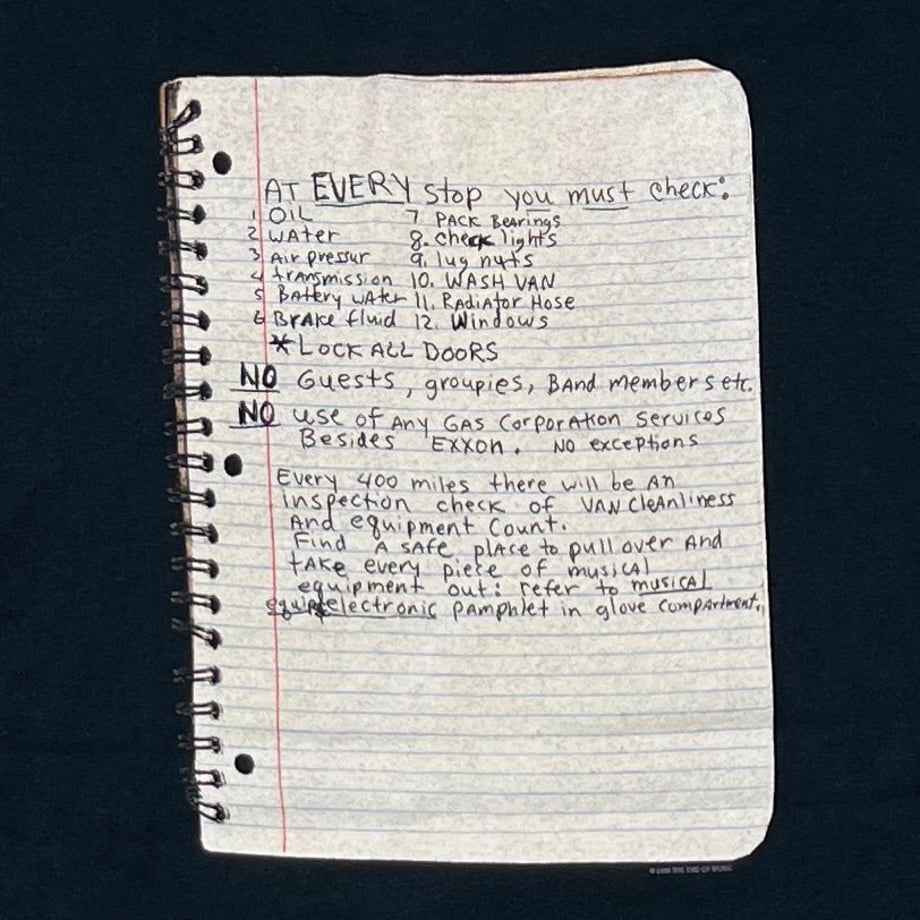 AT EVERY stop you must check:
1 OIL 7. PACK BeArings
2 WAter 8. check lights
3 Air pressur 9. lug nuts
4 trAnsmission 10. WASH VAN
5 BAttery wAter 11. RADiAtor Hose
6 BrAke fluid 12. Windows
* LOCK ALL DOORS
NO Guests, groupies, BAnd members etc.
NO use of Any GAS CorporAtion Services
Besides Exxon. No exceptions
Every 400 miles there will be An
inspection check of VAN CleAnliness
And equipment Count.
Find A sAfe plAce to pull over And
tAke every piece of musicAl
equipment out: refer to musicAl
electronic pAmphlet in glove compArtment.
THE END OF MUSIC